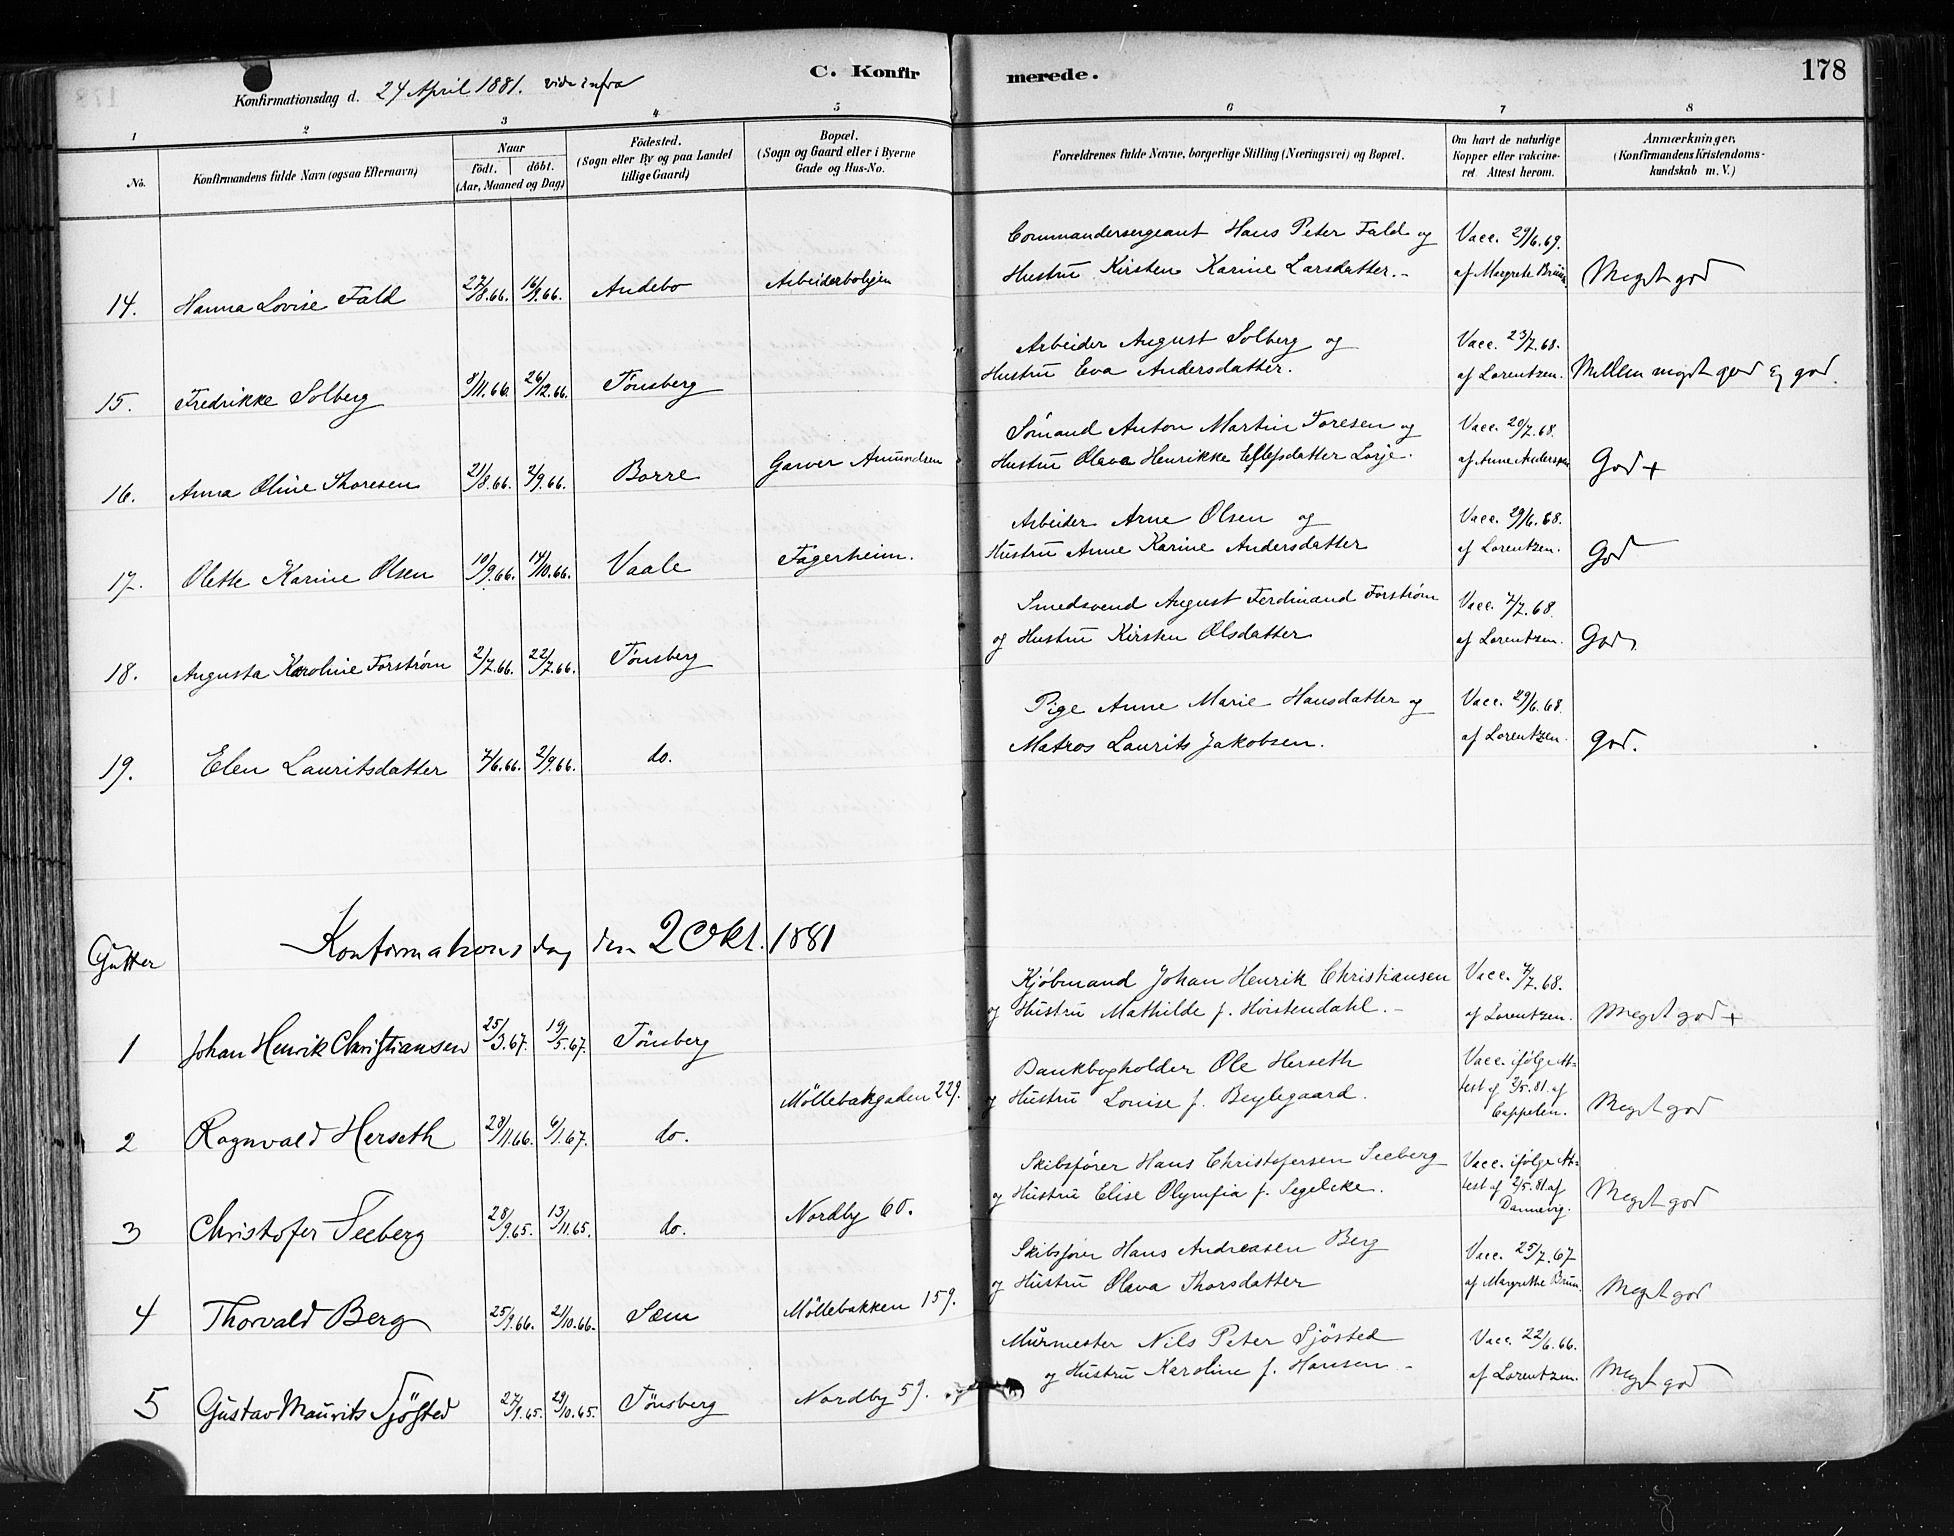 C. Konfirmerede.
178
Konfirmationsdag d. 24 April 1881. vide infra
1 2 3 4 5 6 7 8
No.
Konfirmandens fulde Navn (ogsaa Efternavn)
Naar
födt. döbt.
(Aar, Maaned og Dag)
Födested.
(Sogn eller By og paa Landet
tillige Gaard)
Bopæl.
(Sogn og Gaard eller i Byerne
Gade og Hus-No.
Forældrenes fulde Navne, borgerlige Stilling (Næringsvei) og Bopæl.
Om havt de naturlige
Kopper eller vakcine-
ret. Attest herom.
Anmærkninger.
(Konfirmandens Kristendoms-
kundskab m. V.)
14. Hanna Lovise Fald 27/8.66. 16/9.66. Andebo Arbeiderboligen
Commandersergeant Hans Peter Fald og
Hustru Kirsten Karine Larsdatter.-
Vacc. 29/6.69.
af Margrete Bruun.
Meget god
15. Fredrikke Solberg 8/11.66. 26/12.66. Tønsberg
Arbeider August Solberg og
Hustru Eva Andersdatter.
Vacc. 23/7.68.
af Lorentzen.
Mellem meget god og god.
16. Anna Oline Thoresen 21/8.66. 2/9.66. Borre Garver Amundsen
Sømand Anton Martin Toresen og
Hustru Olava Henrikke
Vacc. 20/7.68.
af Anne Andersen
God +
17. Olette Karine Olsen 10/9.66. 14/10.66. Vaale Fagerheim.
Arbeider Arne Olsen og
Hustru Anne Karine Andersdatter
Vacc. 29/6.68.
af Lorentzen.
God
18. Augusta Karoline Forstrøm 2/7.66. 22/7.66. Tønsberg
Smedsvend August Ferdinand Forstrøm
og Hustru Kirsten Olsdatter
Vacc. 7/7.68.
af Lorentzen.
God
19. Elen Lauritsdatter 7/6.66. 2/9.66. do.
Pige Anne Marie Hansdatter og
Matros Laurits Jakobsen.
Vacc. 29/6.68.
af Lorentzen.
God.
Gutter Konfirmationsdag den 2 Okt. 1881
1 Johan Henrik Christiansen 25/3.67. 19/5.67. Tønsberg
Kjøbmand Johan Henrik Christiansen
og Hustru Mathilde f. Horstendahl.-
Vacc. 7/7.68.
af Lorentzen.
Meget god +
2 Ragnvald Herseth 28/11.66. 6/1.67. do. Møllebakgaden 229.
Bankbogholder Ole Herseth
og Hustru Louise f. Beylegaard.
Vacc. ifølge At-
test af 2/5.81. af
Cappelen.
Meget god
3 Christofer Seeberg 28/9.65. 13/11.65. do. Nordby 60.
Skibsfører Hans Christofersen Seeberg
og Hustru Elise Olymfia f. Segelcke.
Vacc. ifølge At-
test af 2/5.81. af
Dannevig.
Meget god
4 Thorvald Berg 25/9.66. 21/10.66. Sæm Møllebakken 159.
Skibsfører Hans Andreasen Berg
og Hustru Olava Thorsdatter
Vacc. 25/7.67
af Margrethe Bruun.
Meget god
5 Gustav Maurits Sjösted 27/9.65. 29/10.65. Tønsberg Nordby 59.
Murmester Nils Peter Sjösted
og Hustru Karoline f. Hansen -
Vacc. 22/6.66.
af Lorentzen.
Meget god